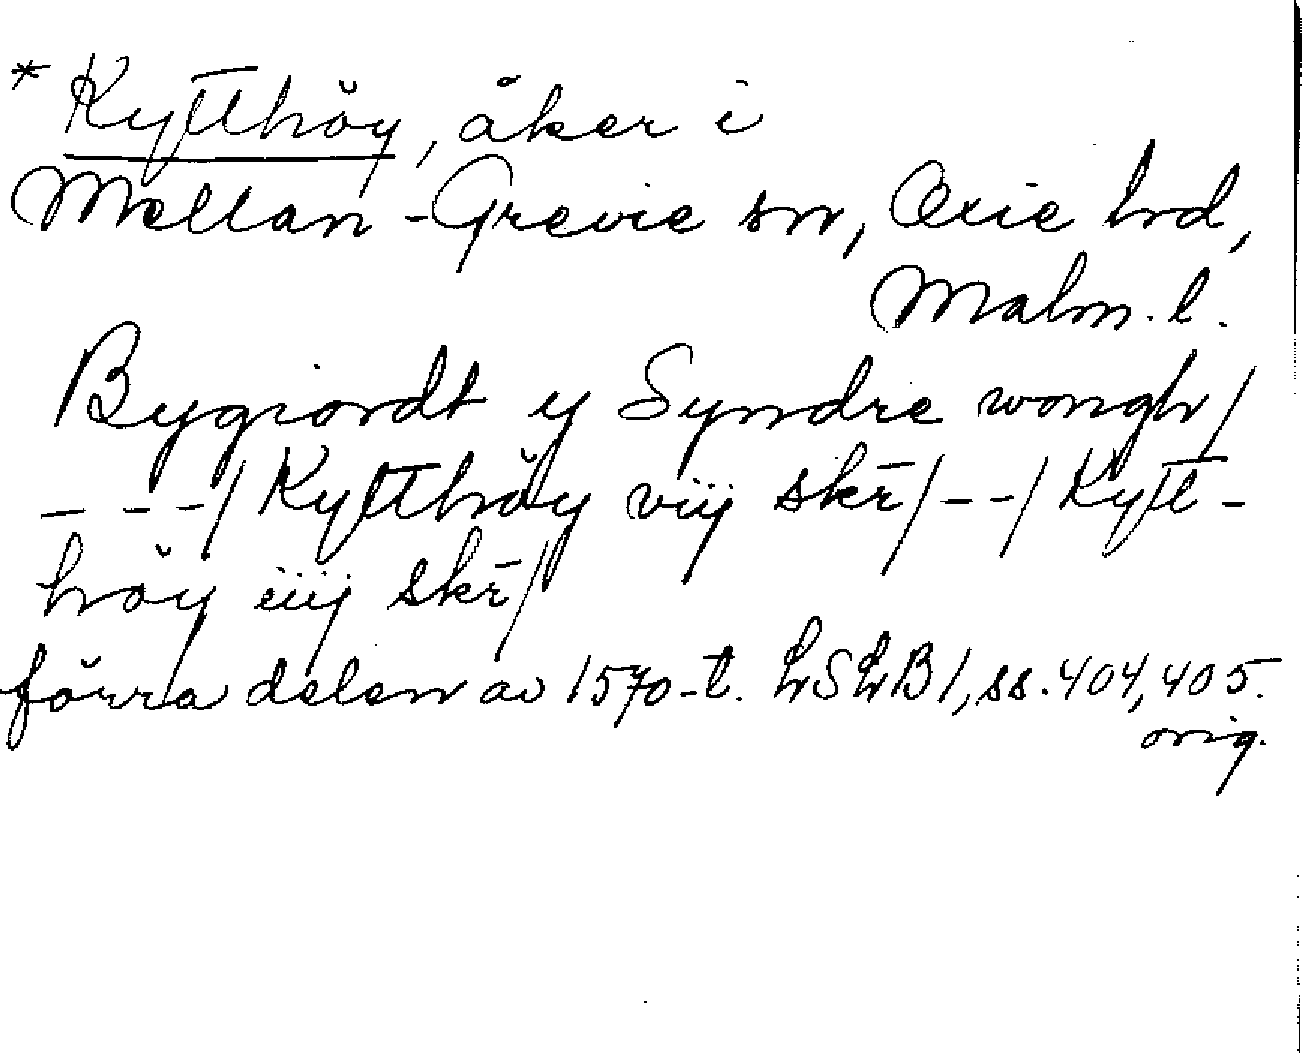 * Kyllhöy, åker i
Mellan-Grevie sn, Oxie hd,
Malm. l.
Bygiordt y Syndre wongh/
- - -/ Kyllhöy viij skr̄/ - -/ Kyll-
höy iiij skr̄/
förra delen av 1570-t. LSLB 1, ss. 404, 405.
orig.